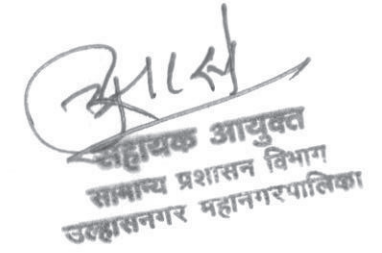 सहायक आयुक्त
सामान्य प्रशासन विभाग
उल्हासनगर महानगरपालिका